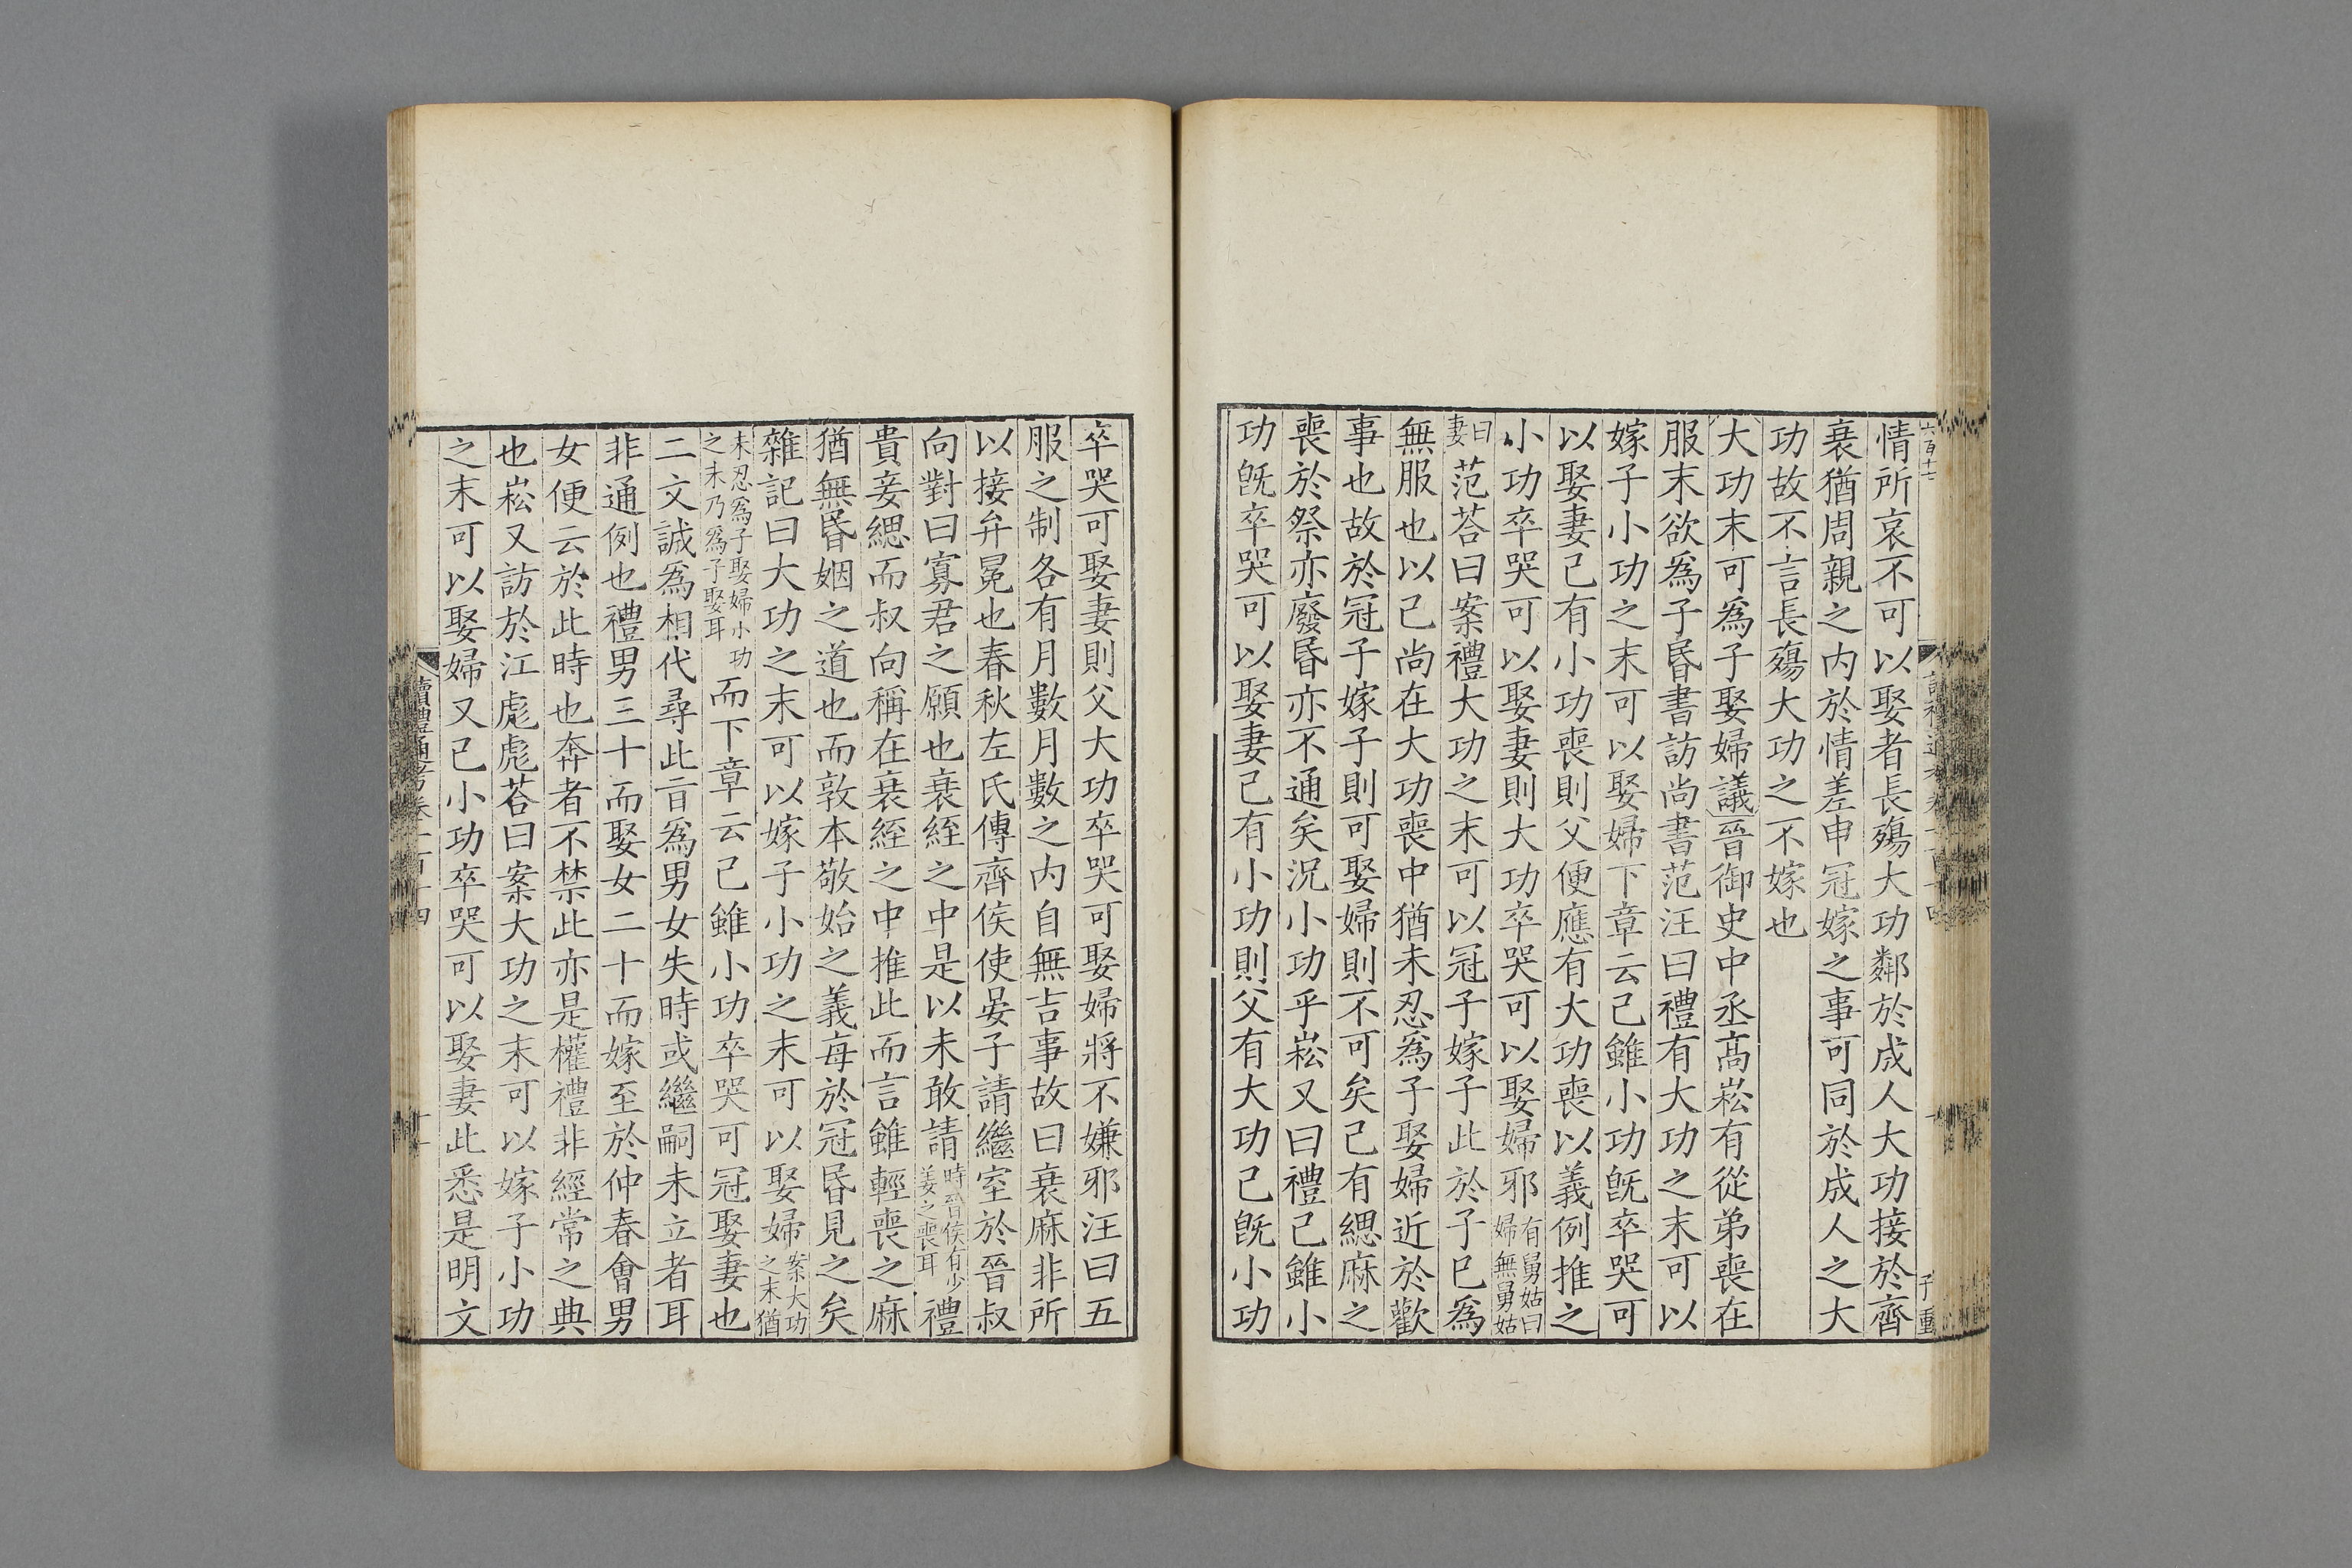 情所哀不可以娶者長殤大功鄰於成人大功接於齊
衰猶周親之內於情差申冠嫁之事可同於成人之大
功故不言長殤大功之不嫁也
大功末可爲子娶婦議晉御史中丞高崧有從弟喪在
服末欲爲子昏書訪尚書范汪曰禮有大功之末可以
嫁子小功之末可以娶婦下章云己雖小功旣卒哭可
以娶妻己有小功喪則父便應有大功喪以義例推之
小功卒哭可以娶妻則大功卒哭可以娶婦邪有舅姑曰婦無舅姑
曰妻范荅曰案禮大功之末可以冠子嫁子此於子已爲
無服也以己尚在大功喪中猶未忍爲子娶婦近於歡
事也故於冠子嫁子則可娶婦則不可矣己有緦麻之
喪於祭亦廢昏亦不通矣況小功乎崧又曰禮己雖小
功旣卒哭可以娶妻己有小功則父有大功己旣小功
卒哭可娶妻則父大功卒哭可娶婦將不嫌邪汪曰五
服之制各有月數月數之內自無吉事故曰衰麻非所
以接弁冕也春秋左氏傳齊侯使晏子請繼室於晉叔
向對曰寡君之願也衰絰之中是以未敢請時晉侯有少姜之喪耳禮
貴妾緦而叔向稱在衰絰之中推此而言雖輕喪之麻
猶無昏姻之道也而敦本敬始之義每於冠昏見之矣
雜記曰大功之末可以嫁子小功之末可以娶婦案大功之末猶
未忍爲子娶婦小功之末乃爲子娶耳而下章云己雖小功卒哭可冠娶妻也
二文誠爲相代尋此旨爲男女失時或繼嗣未立者耳
非通例也禮男三十而娶女二十而嫁至於仲春會男
女便云於此時也奔者不禁此亦是權禮非經常之典
也崧又訪於江彪彪荅曰案大功之末可以嫁子小功
之末可以娶婦又己小功卒哭可以娶妻此悉是明文
讀禮通考卷一百十四